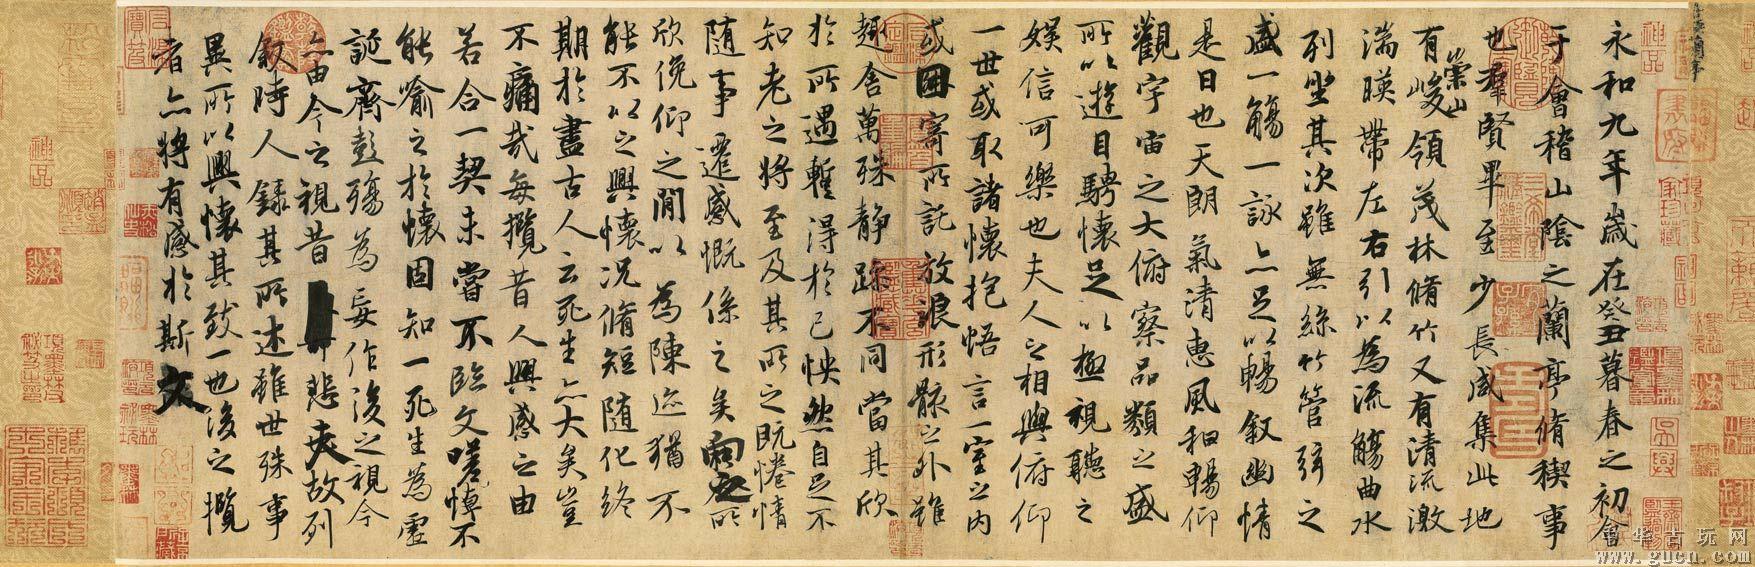 永和九年歲在癸丑暮春之初會
于會稽山陰之蘭亭脩稧事
也羣賢畢至少長咸集此地
有崇山峻領茂林脩竹又有清流激
湍暎帶左右引以為流觴曲水
列坐其次雖無絲竹管弦之
盛一觴一詠亦足以暢敘幽情
是日也天朗氣清惠風和暢仰
觀宇宙之大俯察品類之盛
所以遊目騁懷足以極視聽之
娛信可樂也夫人之相與俯仰
一世或取諸懷抱悟言一室之內
或因寄所託放浪形骸之外雖
趣舍萬殊靜躁不同當其欣
於所遇蹔得於己怏然自足不
知老之將至及其所之既惓情
隨事遷感慨係之矣向之所
欣俛仰之閒以為陳迹猶不
能不以之興懷況脩短隨化終
期於盡古人云死生亦大矣豈
不痛哉每攬昔人興感之由
若合一契未嘗不臨文嗟悼不
能喻之於懷固知一死生為虛
誕齊彭殤為妄作後之視今
亦由今之視昔悲夫故列
敘時人錄其所述雖世殊事
異所以興懷其致一也後之攬
者亦將有感於斯文
华古玩网
www.gucn.com